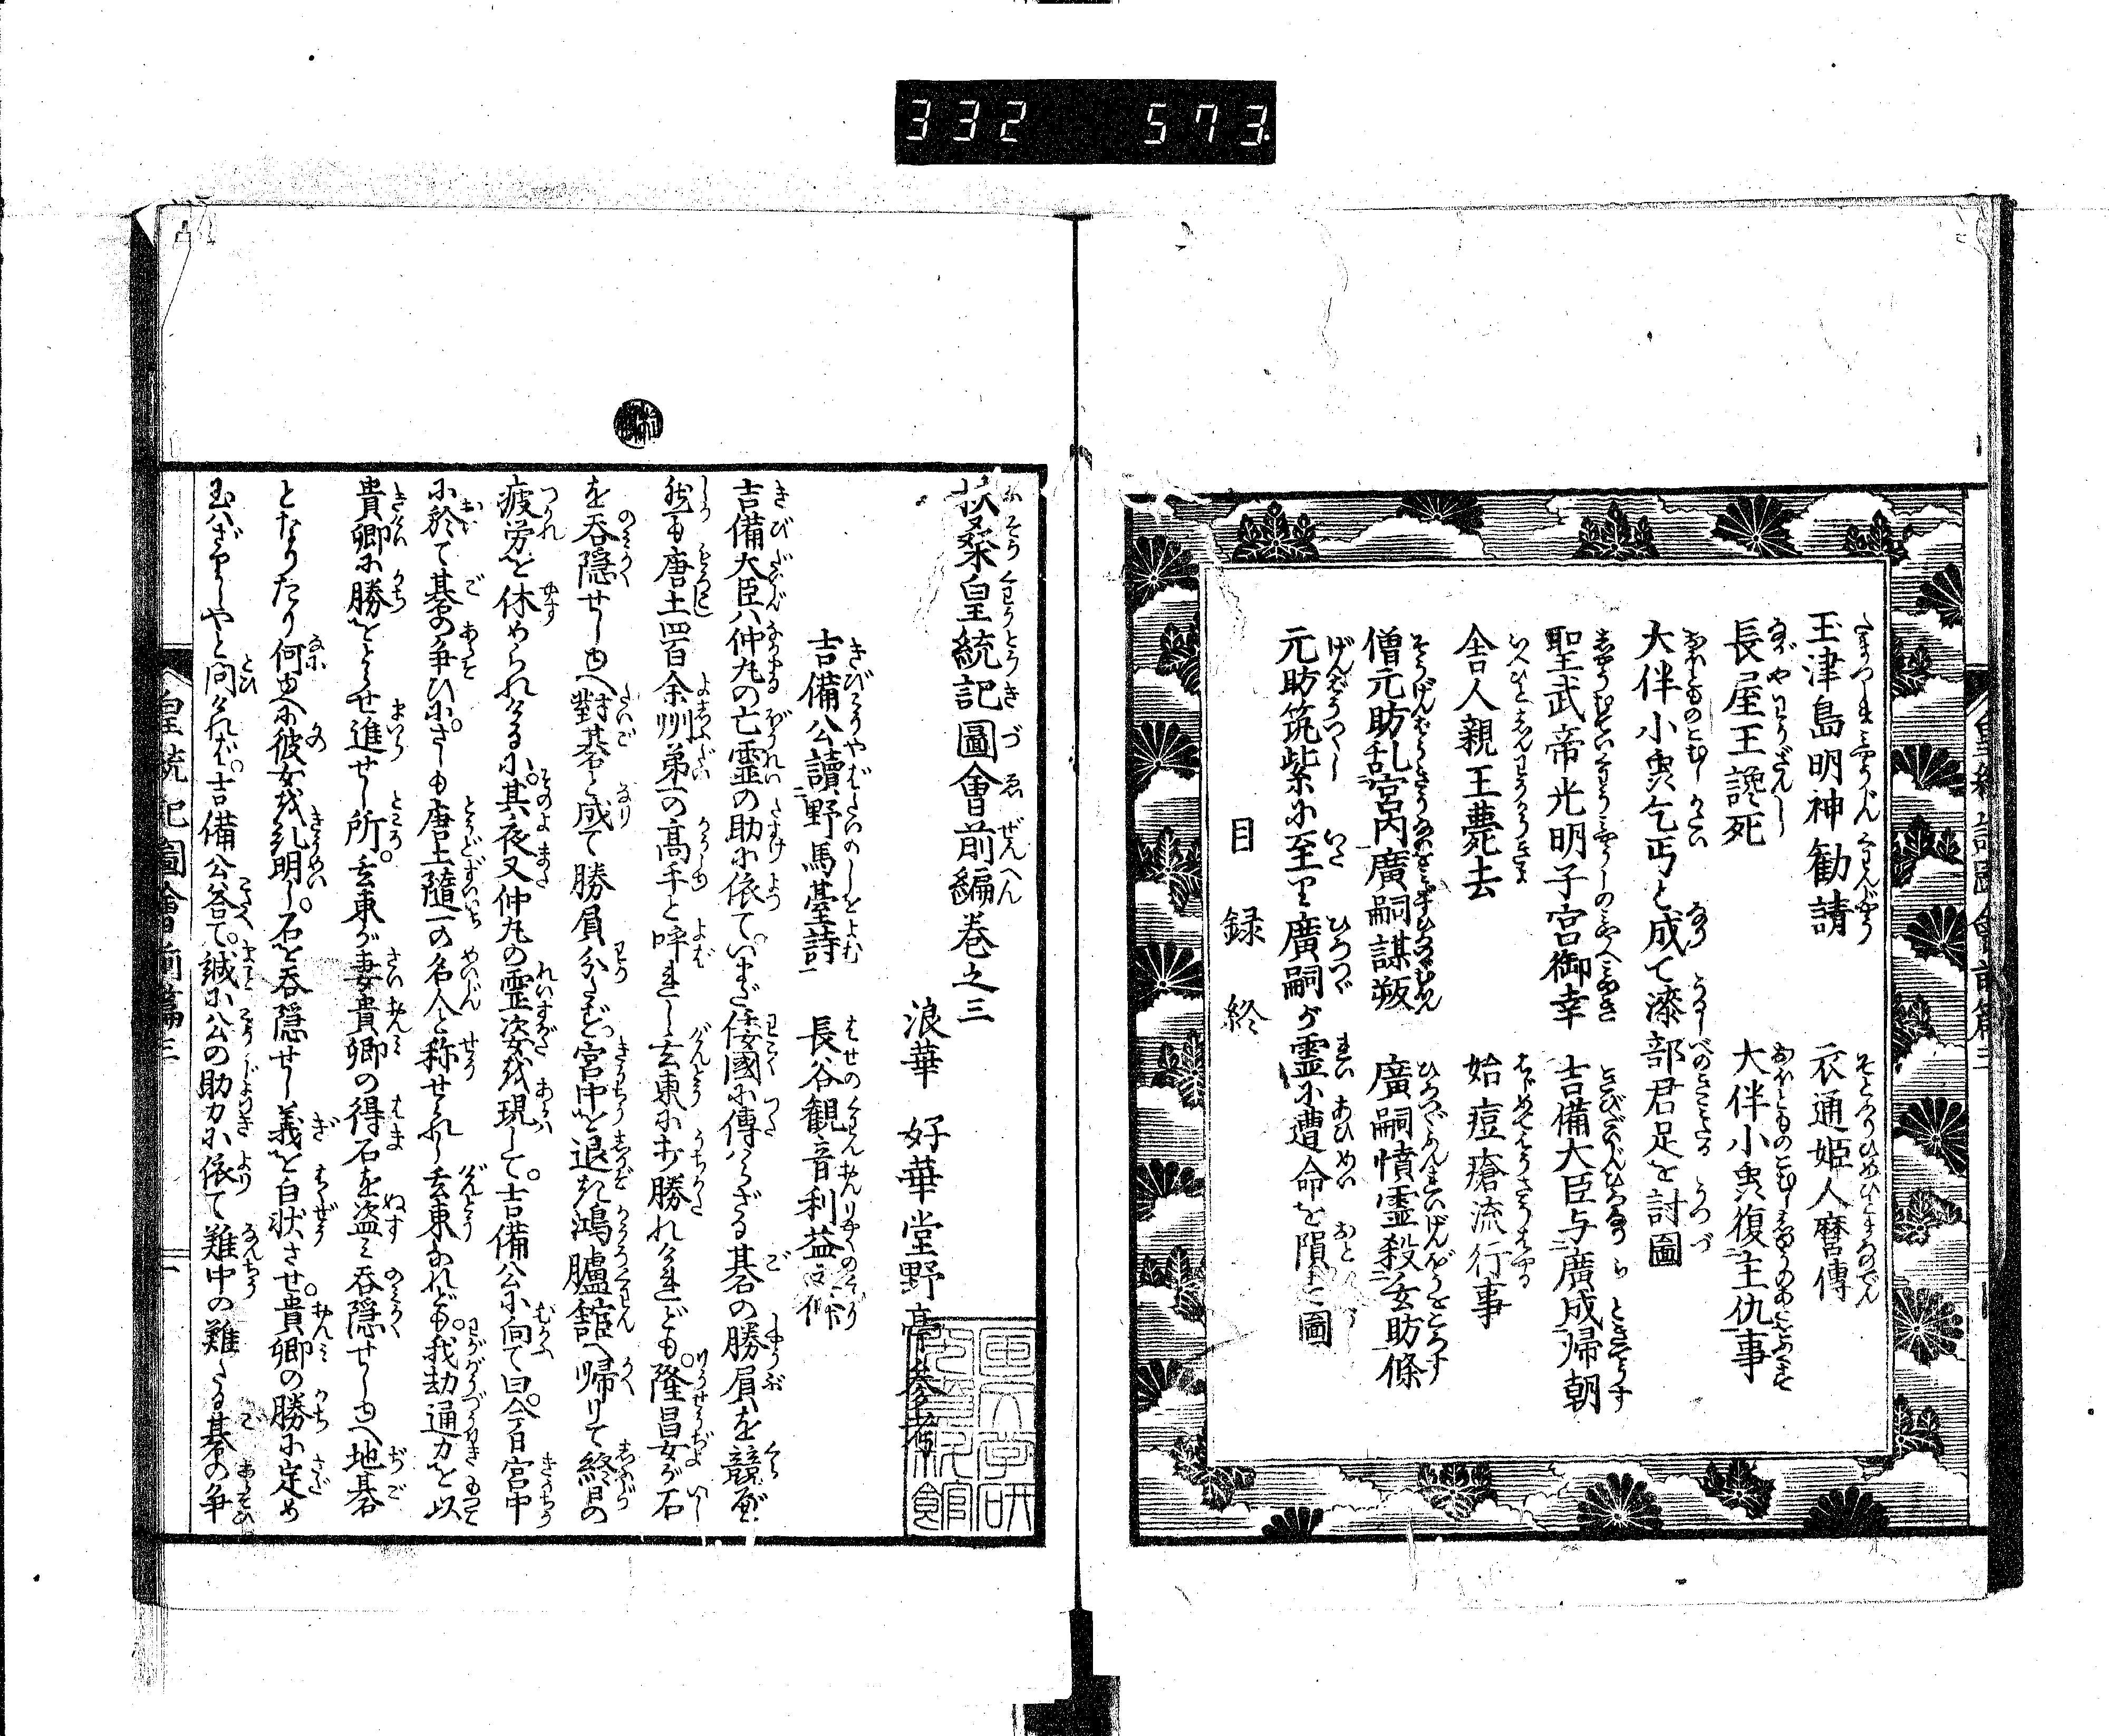 332 573
玉津島明神勧請
衣通姫人麿傳
長屋王讒死
大伴小虫復主仇事
大伴小虫乞丐と成て漆部君足を討圖
聖武帝光明子宮御幸
吉備大臣与廣成帰朝
舎人親王薨去
始痘瘡流行事
僧元昉乱宮内廣嗣謀叛
廣嗣憤霊殺玄昉條
元昉筑紫に至り廣嗣が霊に遭命を隕す圖
目録終
扶桑皇統記圖會前編巻之三
浪華 好華堂野亭参考
吉備公讀野馬臺詩 長谷観音利益の條
吉備大臣ハ仲丸の亡霊の助に依て。いまだ倭國に傳ハらざる碁の勝負を競べ
然も唐土四百余州第一の高手と呼れし玄東に打勝れけれども。隆昌女が石
を呑隠せしゆへ對碁と成て勝負分たず。宮中を退き鴻臚舘へ帰りて終日の
疲労を休められけるに。其夜又仲丸の霊姿を現して。吉備公に向て曰。今日宮中
に於て碁の争ひに。さしも唐土隨一の名人と称せられし玄東なれども。我劫通力を以
貴卿に勝をとらせ進せし所。玄東が妻貴卿の得石を盗ミ呑隠せしゆへ地碁
となりたり何ゆへに彼女を糺明し。石を呑隠せし義を白状させ。貴卿の勝に定め
玉ハざりしやと問けれバ。吉備公答て。誠に公の助力に依て難中の難たる碁の争
皇統記圖會前篇三